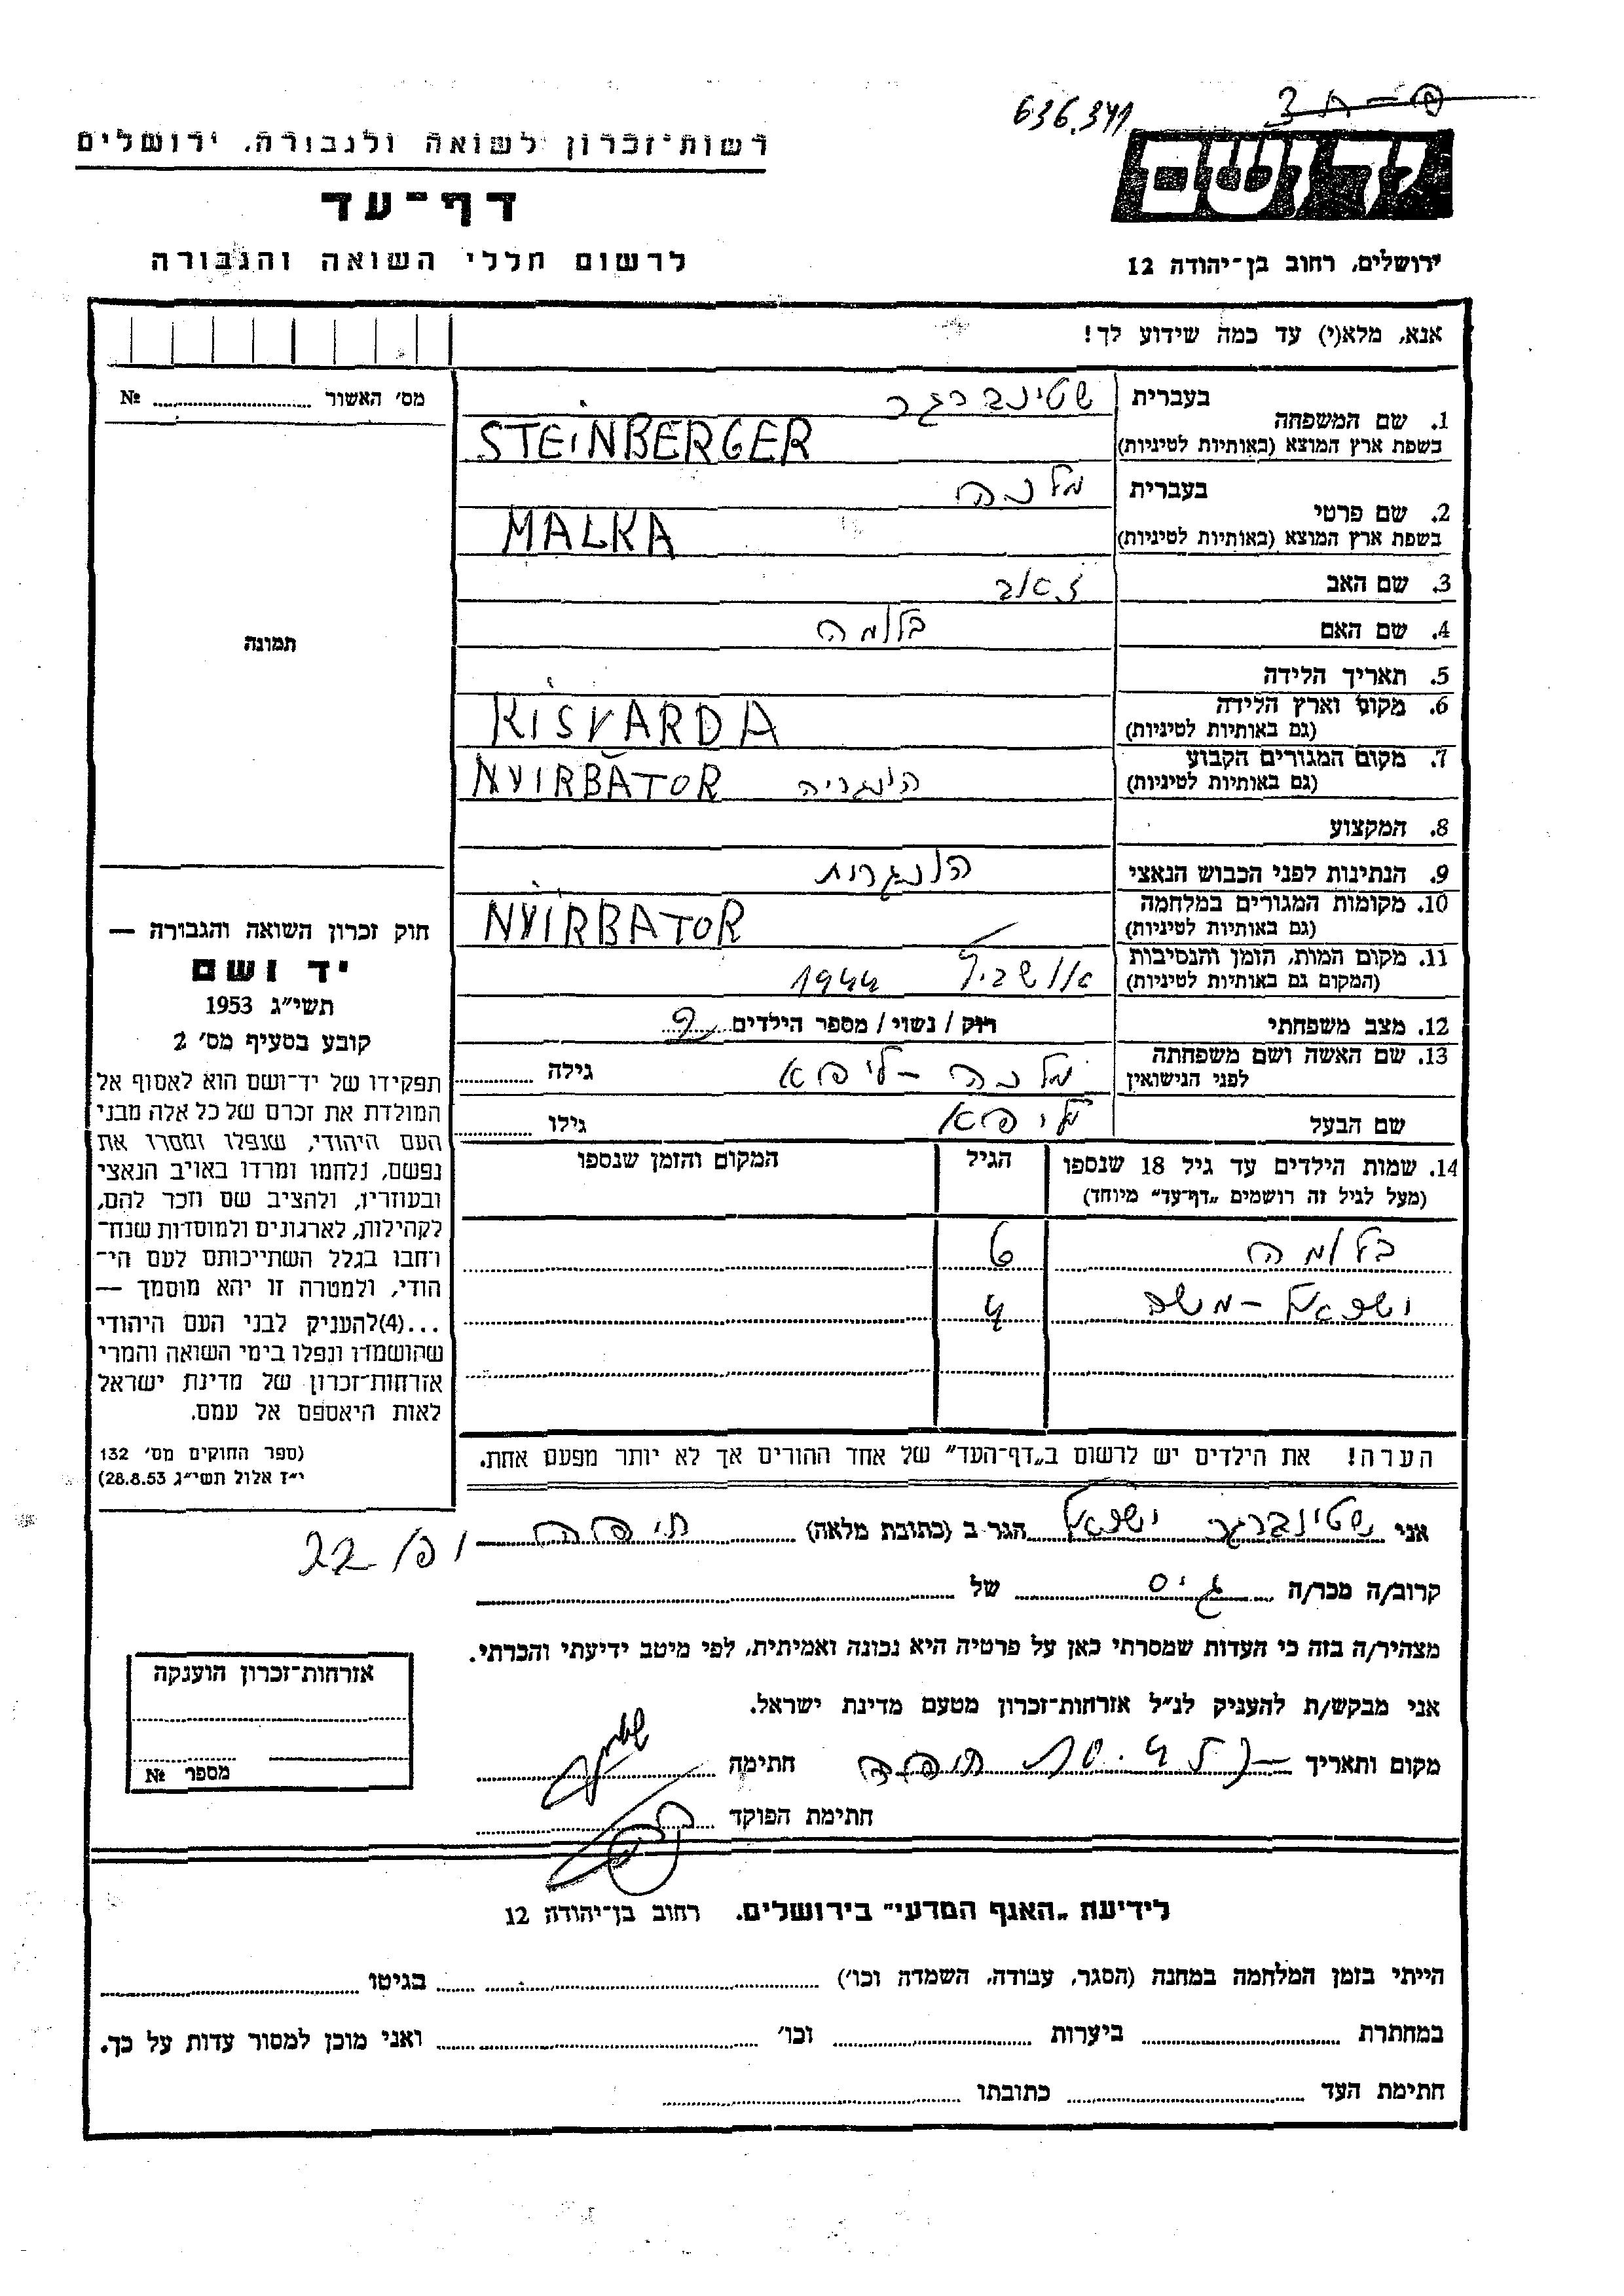 636.341
יד ושם
רשות־זכרון לשואה ולגבורה, ירושלים
דף־עד
לרשום חללי השואה והגבורה
ירושלים, רחוב בן־יהודה 12
אנא, מלא(י) עד כמה שידוע לך!
מס' האשור № 
בעברית שטינברגר
1. שם המשפחה
בשפת ארץ המוצא (באותיות לטיניות) STEINBERGER
בעברית מלכה
2. שם פרטי
בשפת ארץ המוצא (באותיות לטיניות) MALKA
3. שם האב זאב
4. שם האם בלומה
5. תאריך הלידה
6. מקום וארץ הלידה
(גם באותיות לטיניות) KISVARDA
7. מקום המגורים הקבוע
(גם באותיות לטיניות) NYIRBÁTOR הונגריה
8. המקצוע
9. הנתינות לפני הכבוש הנאצי הונגרית
10. מקומות המגורים במלחמה
(גם באותיות לטיניות) NYIRBATOR
11. מקום המות, הזמן והנסיבות
(המקום גם באותיות לטיניות) 1944
12. מצב משפחתי רוק / נשוי / מספר הילדים
13. שם האשה ושם משפחתה
לפני הנישואין מלכה - ליפא גילה
שם הבעל ליפא גילו
14. שמות הילדים עד גיל 18 שנספו הגיל המקום והזמן שנספו
(מעל לגיל זה רושמים „דף־עד" מיוחד)
בלומה 6
ישראל - משה 4
הערה! את הילדים יש לרשום ב„דף־העד" של אחד ההורים אך לא יותר מפעם אחת.
תמונה
חוק זכרון השואה והגבורה —
יד ושם
תשי"ג 1953
קובע בסעיף מס' 2
תפקידו של יד־ושם הוא לאסוף אל
המולדת את זכרם של כל אלה מבני
העם היהודי, שנפלו ומסרו את
נפשם, נלחמו ומרדו באויב הנאצי
ובעוזריו, ולהציב שם וזכר להם,
לקהילות, לארגונים ולמוסדות שנח־
רחבו בגלל השתייכותם לעם הי־
הודי, ולמטרה זו יהא מוסמך —
...(4)להעניק לבני העם היהודי
שהושמדו ונפלו בימי השואה והמרי
אזרחות־זכרון של מדינת ישראל
לאות היאספם אל עמם.
(ספר החוקים מס' 132
י"ז אלול תשי"ג 28.8.53)
אני שטינברגר ישראל הגר ב (כתובת מלאה) חיפה
קרוב/ה מכר/ה גיס של
מצהיר/ה בזה כי העדות שמסרתי כאן על פרטיה היא נכונה ואמיתית, לפי מיטב ידיעתי והכרתי.
אני מבקש/ת להעניק לנ"ל אזרחות־זכרון מטעם מדינת ישראל.
מקום ותאריך חיפה חתימה
חתימת הפוקד
אזרחות־זכרון הוענקה
מספר №
לידיעת „האגף המדעי" בירושלים. רחוב בן־יהודה 12
הייתי בזמן המלחמה במחנה (הסגר, עבודה, השמדה וכו') בגיטו
במחתרת ביערות וכו' ואני מוכן למסור עדות על כך.
חתימת העד כתובתו